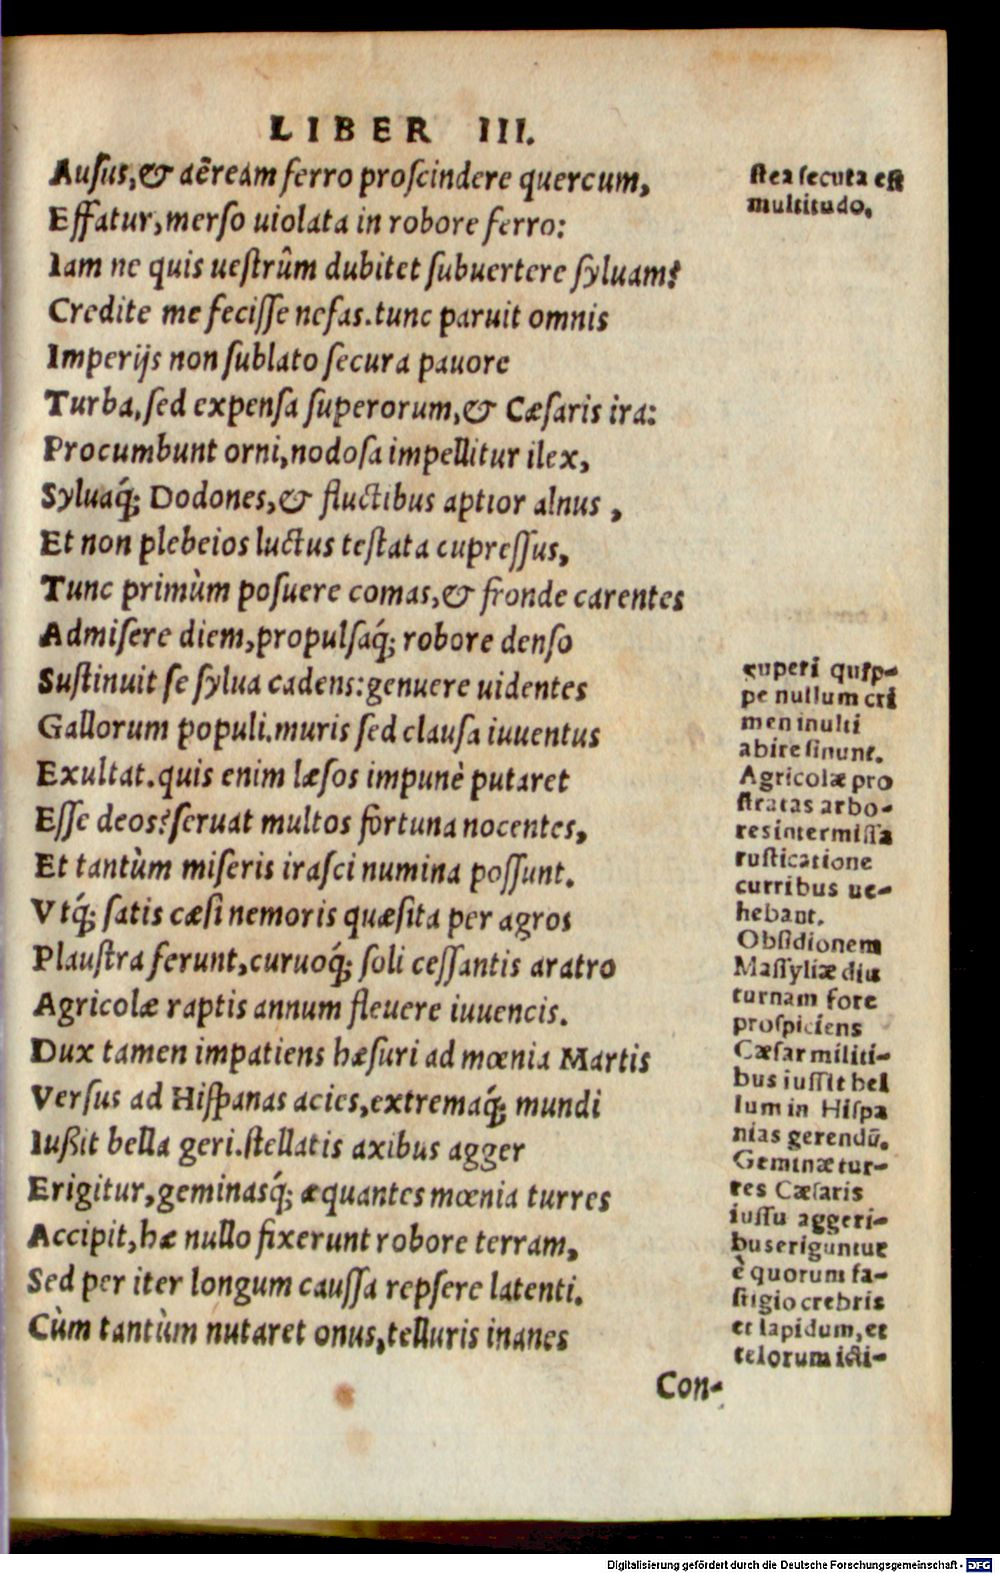 LIBER III.
Ausus,& aëream ferro proscindere quercum,
Effatur,merso uiolata in robore ferro:
Iam ne quis uestrûm dubitet subuertere syluam?
Credite me fecisse nefas.tunc paruit omnis
Imperijs non sublato secura pauore
Turba,sed expensa superorum,& Cæsaris ira:
Procumbunt orni,nodosa impellitur ilex,
Syluaq́; Dodones,& fluctibus aptior alnus ,
Et non plebeios luctus testata cupressus,
Tunc primùm posuere comas,& fronde carentes
Admisere diem,propulsaq́; robore denso
Sustinuit se sylua cadens:genuere uidentes
Gallorum populi.muris sed clausa iuuentus
Exultat.quis enim læsos impunè putaret
Esse deos?seruat multos fortuna nocentes,
Et tantùm miseris irasci numina possunt.
Vtq́; satis cæsi nemoris quæsita per agros
Plaustra ferunt,curuoq́; soli cessantis aratro
Agricolæ raptis annum fleuere iuuencis.
Dux tamen impatiens hæsuri ad mœnia Martis
Versus ad Hispanas acies,extremaq́; mundi
Iußit bella geri.stellatis axibus agger
Erigitur,geminasq́; æquantes mœnia turres
Accipit,hæ nullo fixerunt robore terram,
Sed per iter longum caussa repsere latenti.
Cùm tantùm nutaret onus,telluris inanes
Con-
stea secuta est
multitudo.
superi quip-
pe nullum cri
men inulti
abire sinunt.
Agricolæ pro
stratas arbo-
res intermissa
rusticatione
curribus ue-
hebant.
Obsidionem
Massyliæ diu
turnam fore
prospiciens
Cæsar militi-
bus iussit bel
lum in Hispa
nias gerendū.
Geminæ tur-
res Cæsaris
iussu aggeri-
bus eriguntur
è quorum fa-
stigio crebris
et lapidum,et
telorum icti-
Digitalisierung gefördert durch die Deutsche Forschungsgemeinschaft - DFG